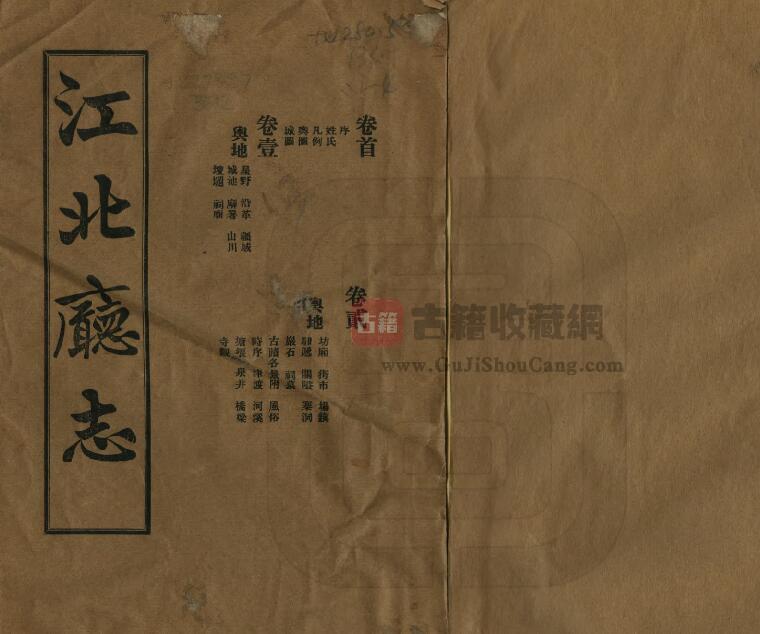 江北廳志
卷首
序
姓氏
凡例
輿圖
城圖
卷壹
輿地
星野 沿革 疆域
城池 廨署 山川
壇壝 祠廟
卷貳
輿地
坊廂 街市 場鎮
驛遞 關隘 寨洞
巖石 祠墓
古蹟各景附 風俗
時序 津渡 河溪
塘堰 泉井 橋梁
寺觀
古籍
古籍收藏網
www.GuJiShouCang.com